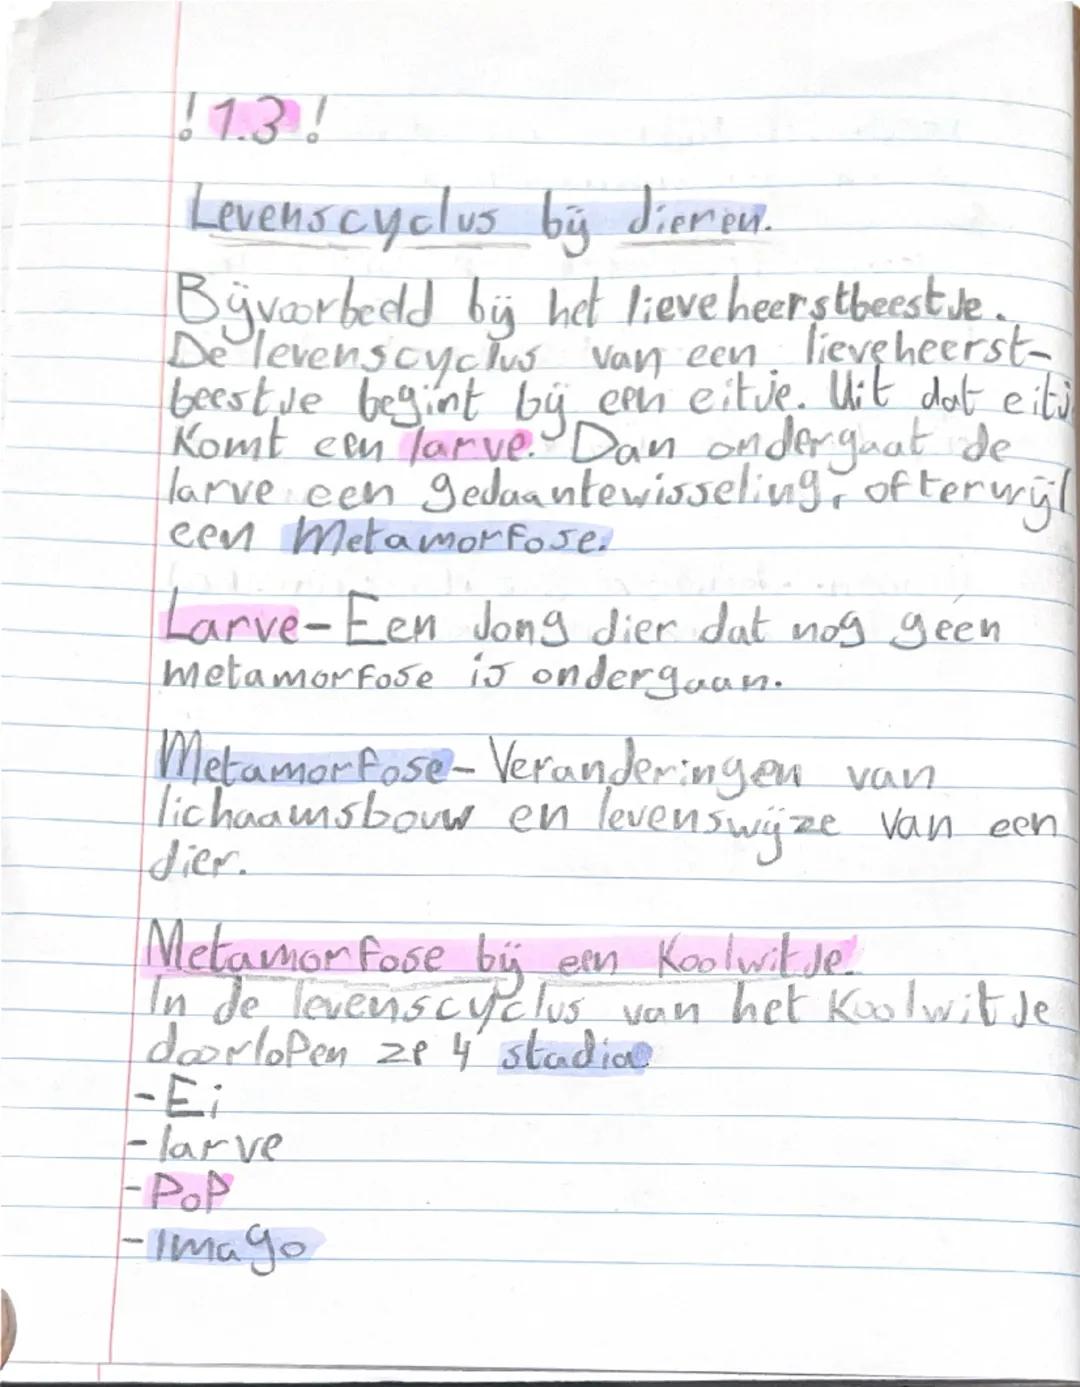 ! 1.3 !
Levenscyclus bij dieren.
Bijvoorbeeld bij het lieveheerstbeestje.
De levenscyclus van een lieveheerst-
beestje begint bij een eitje. Uit dat eitj
komt een larve. Dan ondergaat de
larve een gedaantewisseling, ofterwijl
een Metamorfose.
Larve - Een Jong dier dat nog geen
metamorfose is ondergaan.
Metamorfose - Veranderingen van
lichaamsbouw en levenswijze van een
dier.
Metamorfose bij een Koolwitje.
In de levenscyclus van het Koolwitje
doorlopen ze 4 stadia
- Ei
- larve
- Pop
- Imago